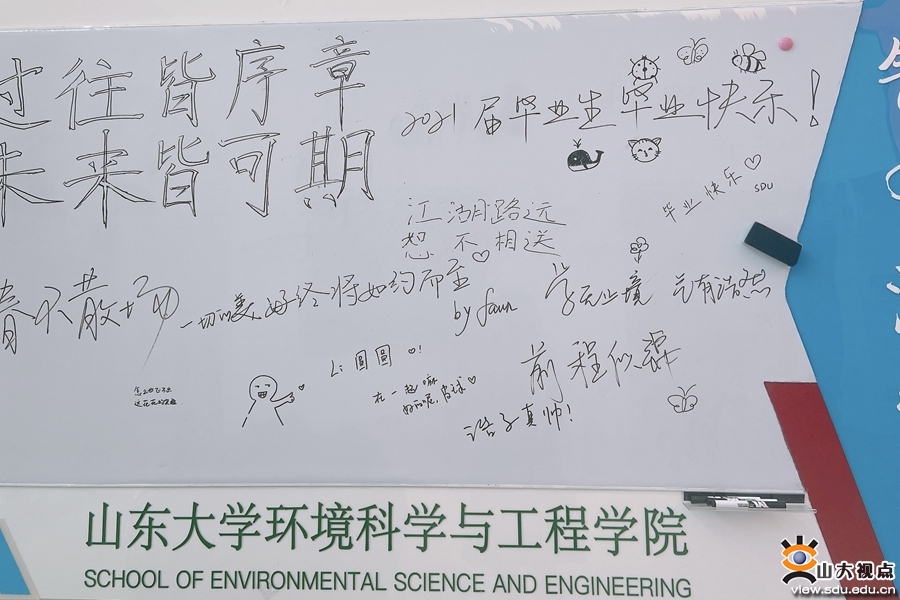 过往皆序章
未来皆可期
2021届毕业生毕业快乐!
毕业快乐♡
SDU
江湖路远
恕不相送
春不散场
一切的美好终将如约而至
by faun
学无止境 总有浩然
前程似霖
L:圆圆♡!
在一起嘛
好的呢,皮球♡
诰子真帅!
山东大学环境科学与工程学院
SCHOOL OF ENVIRONMENTAL SCIENCE AND ENGINEERING
山大视点
view.sdu.edu.cn